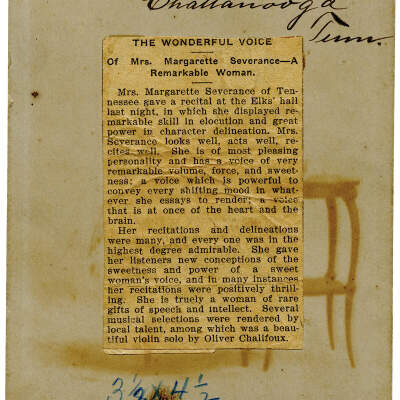 Chattanooga
Tenn.
THE WONDERFUL VOICE
Of Mrs. Margarette Severance—A
Remarkable Woman.
Mrs. Margarette Severance of Ten-
nessee gave a recital at the Elks' hall
last night, in which she displayed re-
markable skill in elocution and great
power in character delineation. Mrs.
Severance looks well, acts well, re-
cites well. She is of most pleasing
personality and has a voice of very
remarkable volume, force, and sweet-
ness; a voice which is powerful to
convey every shifting mood in what-
ever she essays to render; a voice
that is at once of the heart and the
brain.
Her recitations and delineations
were many, and every one was in the
highest degree admirable. She gave
her listeners new conceptions of the
sweetness and power of a sweet
woman's voice, and in many instances
her recitations were positively thrill-
ing. She is truely a woman of rare
gifts of speech and intellect. Several
musical selections were rendered by
local talent, among which was a beau-
tiful violin solo by Oliver Chalifoux.
3½ x 4½